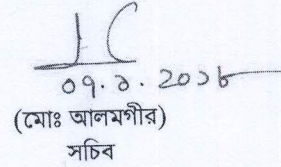 ০৭.১.২০১৮
(মোঃ আলমগীর)
সচিব